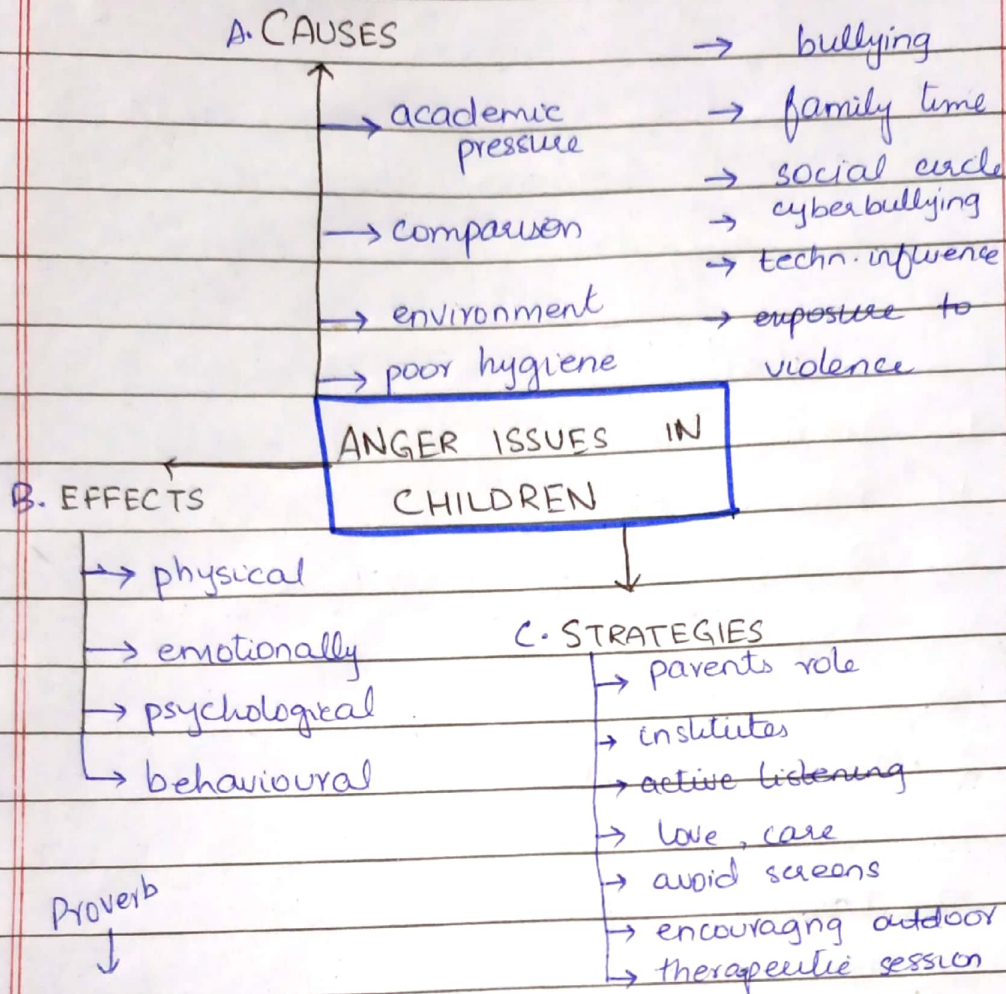 A. CAUSES
→ academic
pressure
→ comparison
→ environment
→ poor hygiene
→ bullying
→ family time
→ social circle
→ cyberbullying
→ techn. influence
→ exposure to
violence
ANGER ISSUES IN
CHILDREN
B. EFFECTS
→ physical
→ emotionally
→ psychological
→ behavioural
C. STRATEGIES
→ parents role
→ institutes
→ active listening
→ love, care
→ avoid screens
→ encouragng outdoor
→ therapeutic session
Proverb
↓